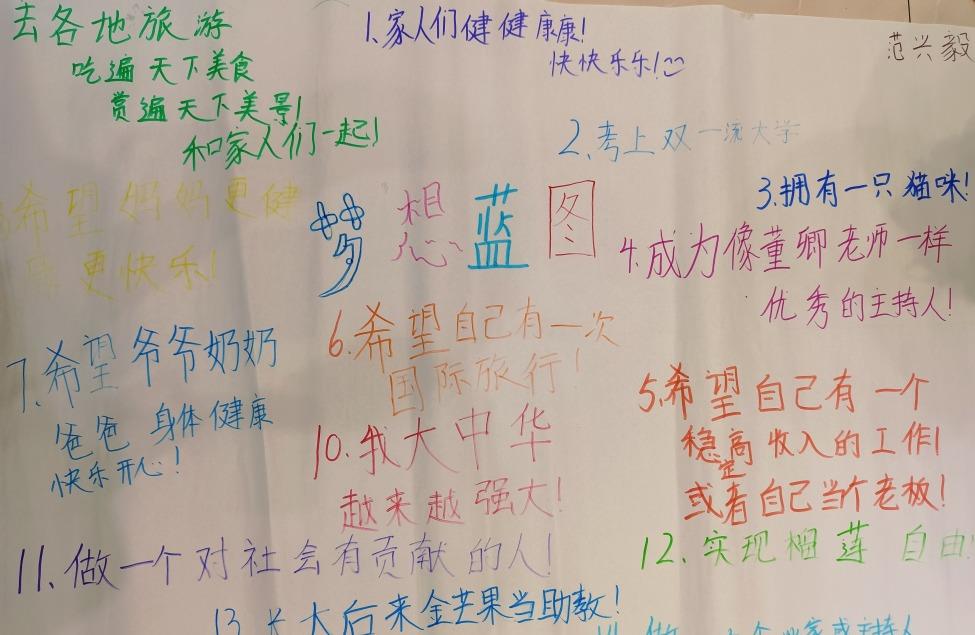 去各地旅游
吃遍天下美食
赏遍天下美景!
和家人们一起!
1.家人们健健康康!
快快乐乐!
范兴毅
2.考上双一流大学
3.拥有一只猫咪!
希望妈妈更健
康更快乐!
梦想蓝图
4.成为像董卿老师一样
优秀的主持人!
6.希望自己有一次
国际旅行!
7.希望爷爷奶奶
爸爸身体健康
快乐开心!
5.希望自己有一个
稳定高收入的工作!
或者自己当个老板!
10.我大中华
越来越强大!
11.做一个对社会有贡献的人!
12.实现榴莲自由
13.长大后来金芒果当助教!